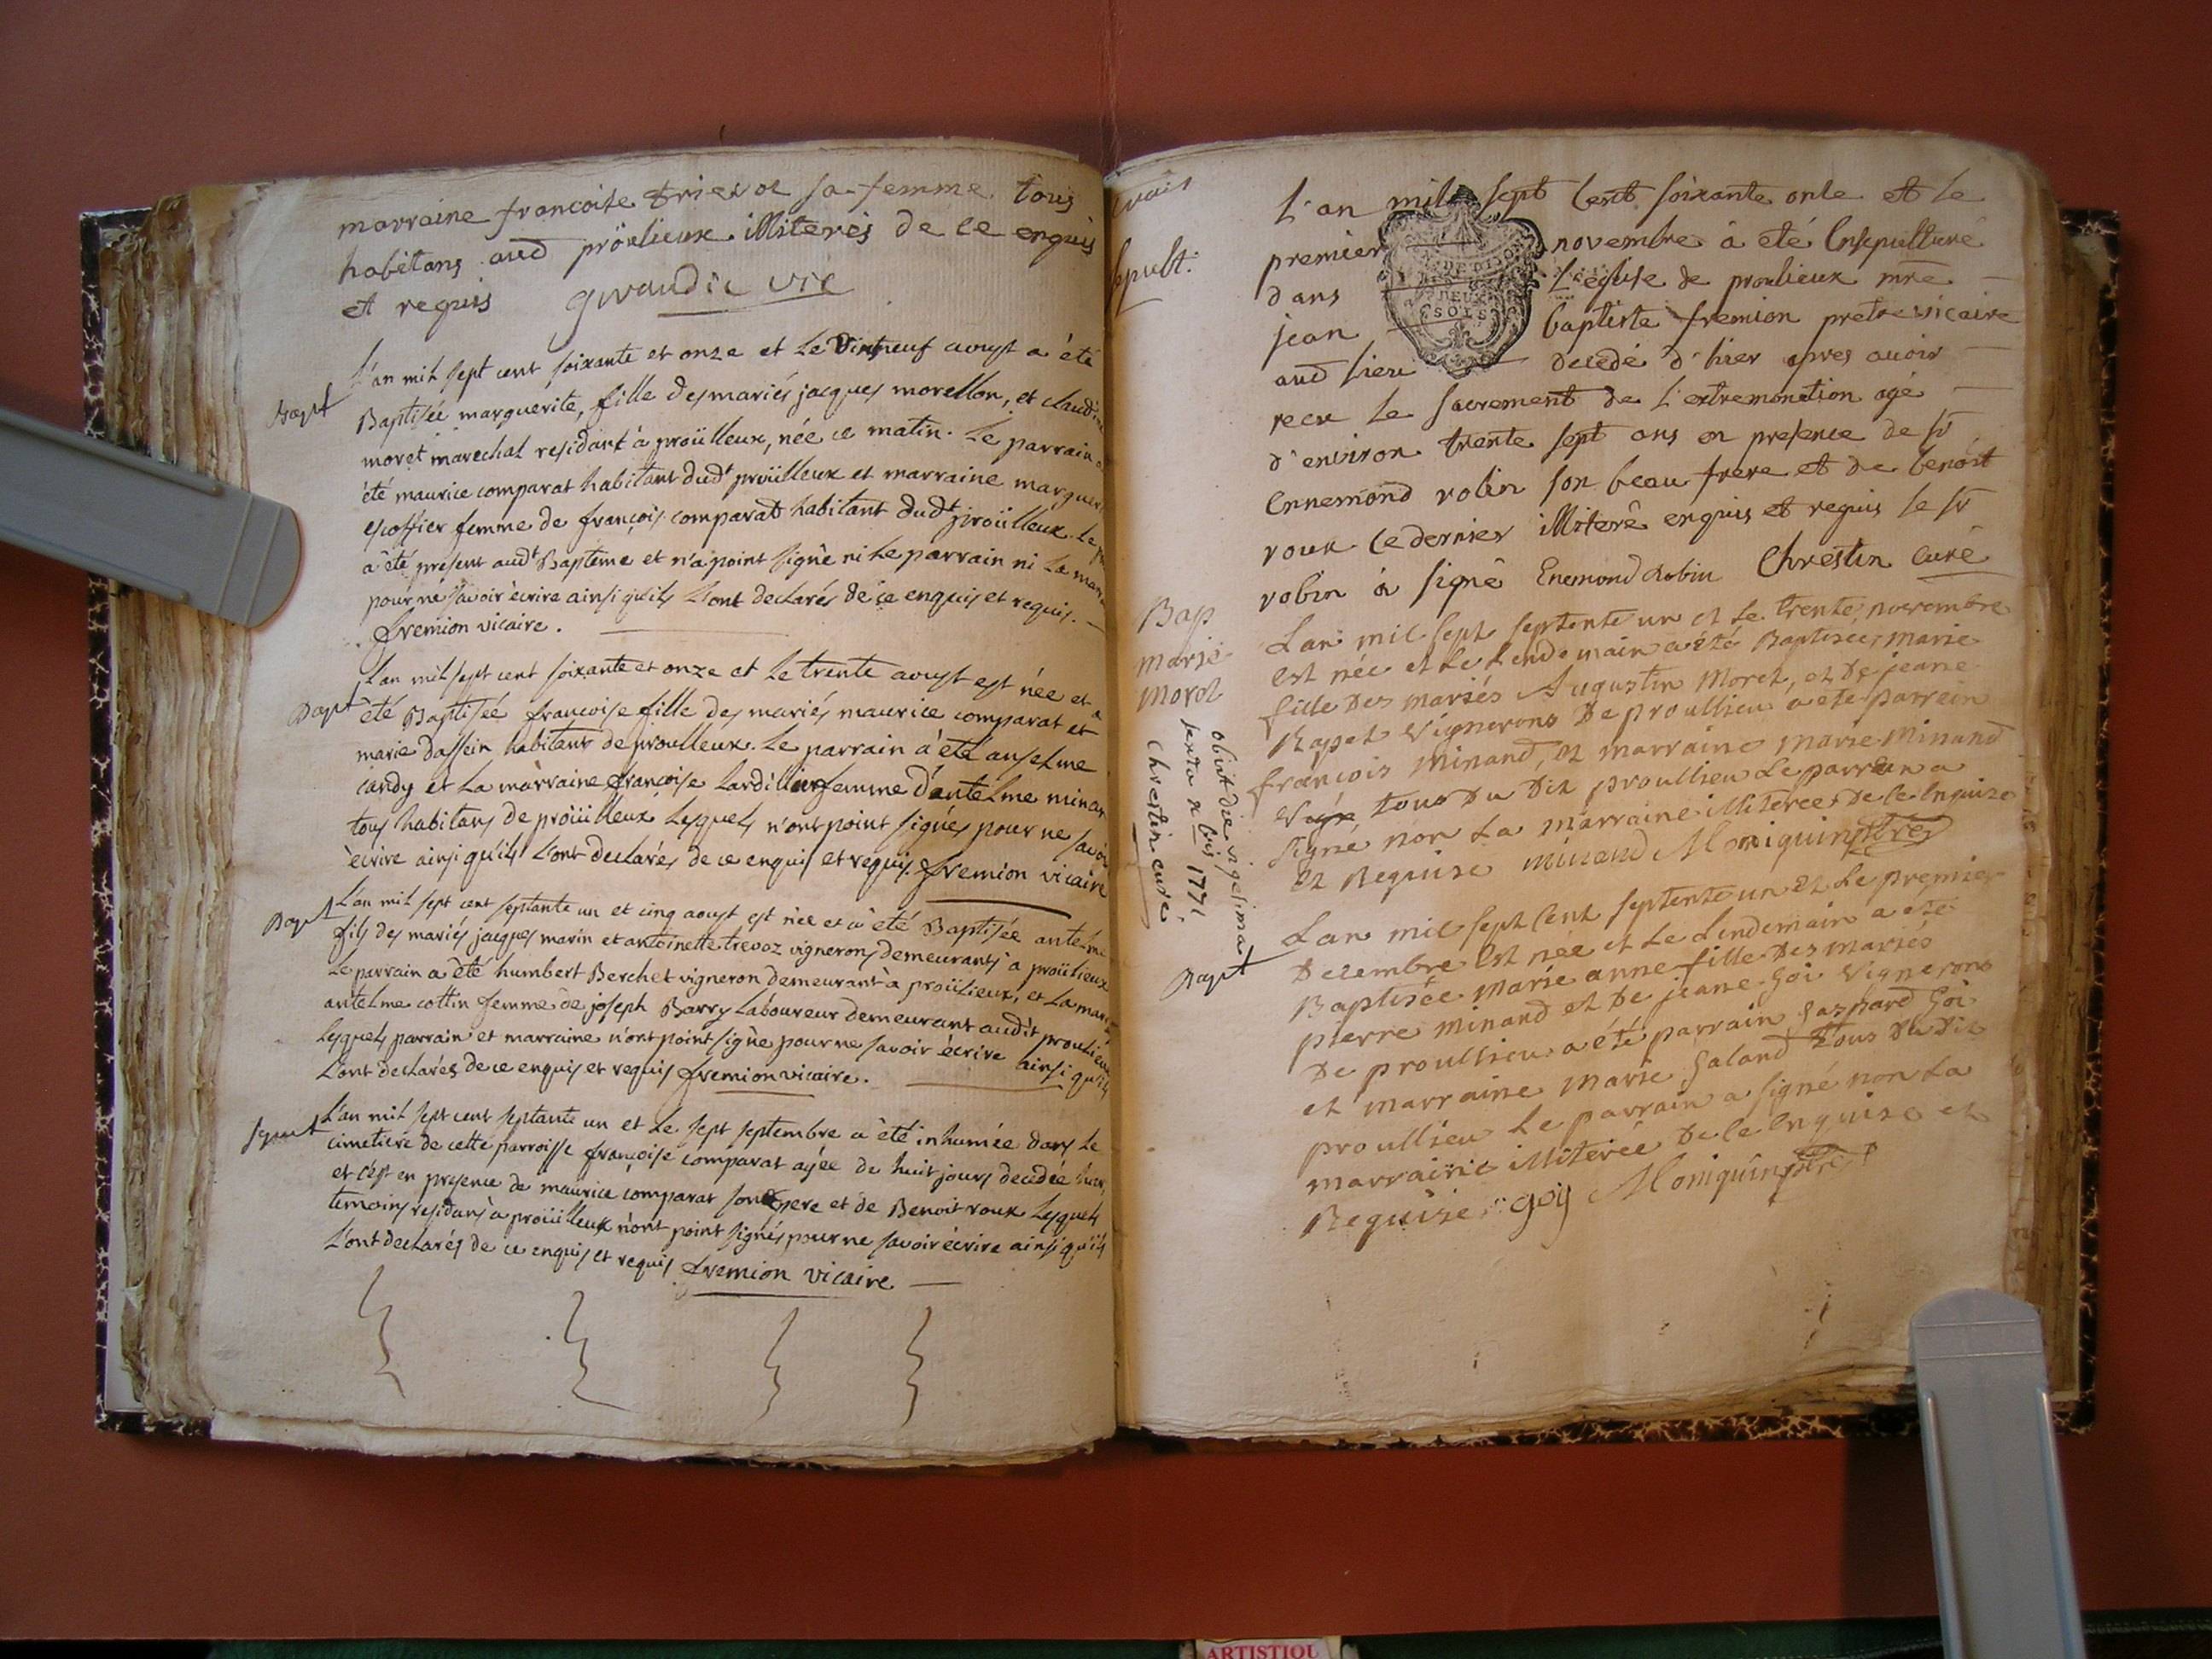 marraine francoise trievoz sa femme tous
habitans aud proulieux illiterés de ce enquis
et requis giraudie vic
L'an mil sept cent soixante et onze et le vintneuf aoust a été
Bapt
Baptisée marguerite, fille des mariés jacques morellon, et claudine
moret marechal residant à proüilleux, née ce matin. Le parrain a
été maurice comparat habitant dudt proüilleux et marraine marguer
escoffier femme de françois comparat habitant dudt proüilleux. Le
a été present audt Bapteme et n'a point signé ni le parrain ni la
pour ne sçavoir ècrire ainsi qu'ils l'ont declarés de ce enquis et requis.
fremion vicaire.
L'an mil sept cent soixante et onze et le trente aoust est née et a
Bapt
été Baptisée françoise fille des mariés maurice comparat et
marie dassein habitans de proulleux. Le parrain a été anselme
candy et la marraine françoise lardillier femme d'antelme minan
tous habitans de proüilleux lesquels n'ont point signés pour ne savoir
ècrire ainsi qu'ils l'ont declarés de ce enquis et requis. fremion vicaire
Bapt
L'an mil sept cent septante un et cinq aoust est née et a été Baptisée antelme
fils des mariés jacques marin et antoinette trevoz vignerons demeurants a proülieux
Le parrain a été humbert Berchet vigneron demeurant à proülieux, et la mar
antelme cottin femme de joseph Barry laboureur demeurant audit proulieux
lesquels parrain et marraine n'ont point signè pour ne savoir ècrire ainsi qu'ils
l'ont declarés de ce enquis et requis fremion vicaire.
L'an mil sept cent septante un et le sept septembre a été inhumée dans le
cimetiere de cette parroisse françoise comparat agée de huit jours decedée hier,
et c'est en presence de maurice comparat son pere et de Benoit roux lesquels
temoins residans à proüilleux n'ont point signés pour ne savoir ècrire ainsi qu'ils
l'ont declarés de ce enquis et requis fremion vicaire
L'an mil sept cent soixante onse et le
premier novembre à eté Ensepulturé
sepult.
dans L'eglise de proulieux mre
jean baptiste fremion pretre vicaire
aud lieu decedé d'hier apres avoir
recu le sacrement de l'extremonction agé
d'environ trente sept ans en presence de sr
Ennemond robin son beau frere et de benoit
roux ce dernier illiteré enquis et requis le sr
robin à signé Enemond Robin Chrestin curé
Bap
marie
moret
Lan mil sept septente un et le trente novembre
est née et le lendemain a été Baptisée, marie
fille des mariés Augustin Moret, et de jeane
Rapet Vignerons de proullieu a ete parrein
françois Minand, et marraine marie Minand
tous du dit proullieu Le parrein a
signé non La marraine illiteree de ce Enquise
et Requise minand Moniquin ptre
obiit die vigesima
sexta xbris 1771
chrestin curé
Bapt
Lan mil sept Cent septente un et Le premier
Decembre est née et Le Lendemain a été
Baptisée marie anne fille des mariés
pierre minand et de jeane Goi Vignerons
De proullieu a été parrain Gaspard Goi
et marraine marie Galand tous du dit
proullieu Le parrain a signé non La
marraine illiterée de ce Enquise et
Requise goy Moniquin ptre
ARTISTIQU